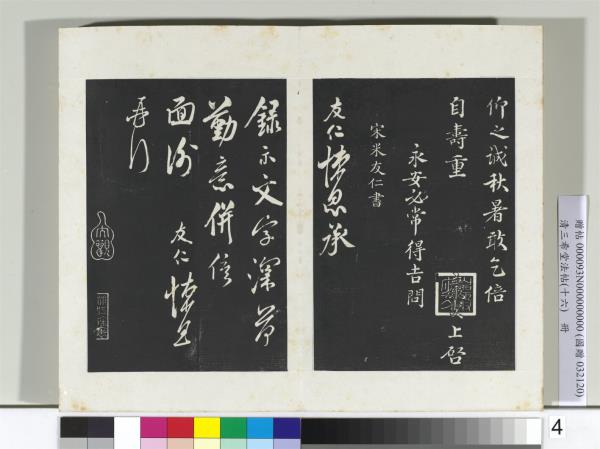 仰之誠秋暑敢乞倍
自壽重
上啓
永安必常得吉問
宋米友仁書
友仁悚息承
錄示文字深荷
勤意併俟
面謝
友仁悚息
再行
贈帖 000093N000000000 (國贈 032120)
清三希堂法帖(十六) 冊
4